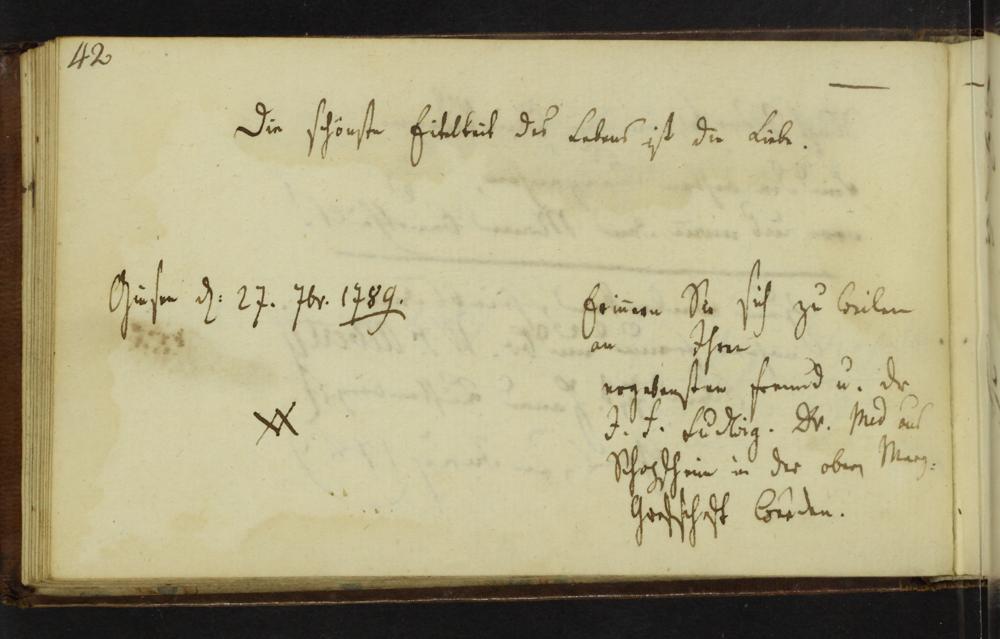 42
Die schönste Eitelkeit des Lebens ist die Liebe.
Giesen d: 27. 7br. 1789.
Erinnern Sie sich zu weilen
an Ihren
ergebensten Freund u. Dr
J. F. Ludwig. Dr. Med aus
Schopfheim in der obern Marg-
Grafschaft Baaden.